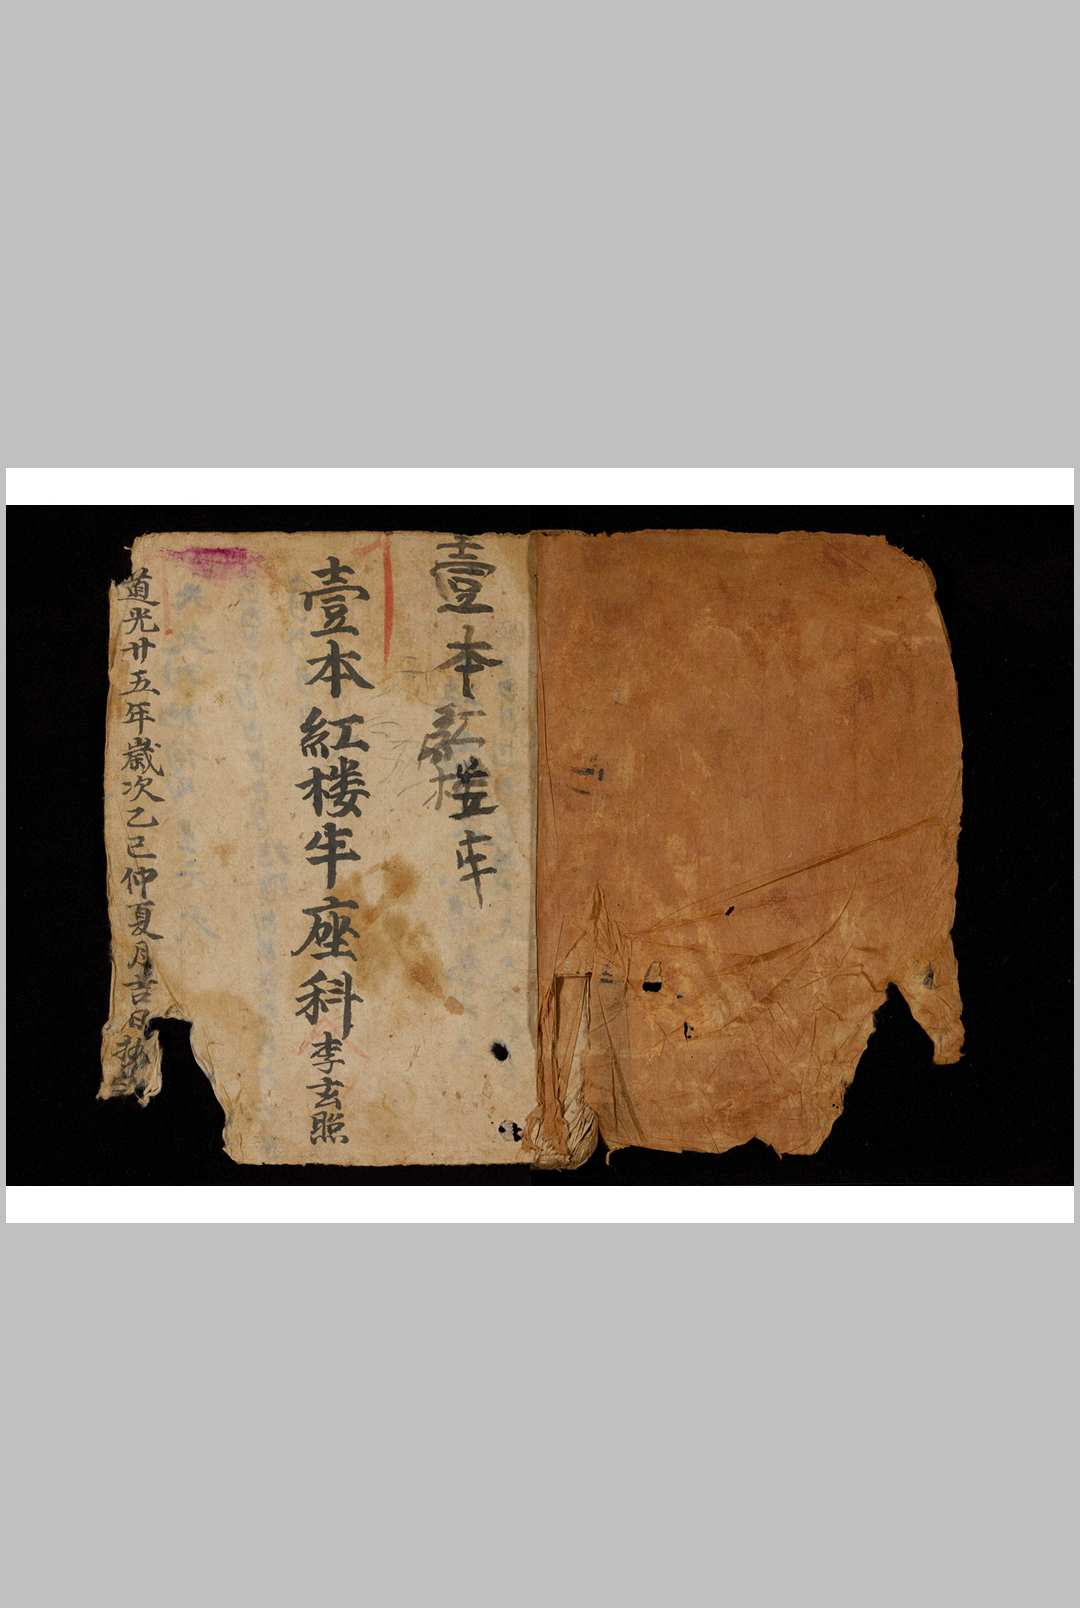 壹本
壹本紅楼牛座科李玄照
道光廿五年歲次乙巳仲夏月吉日抄